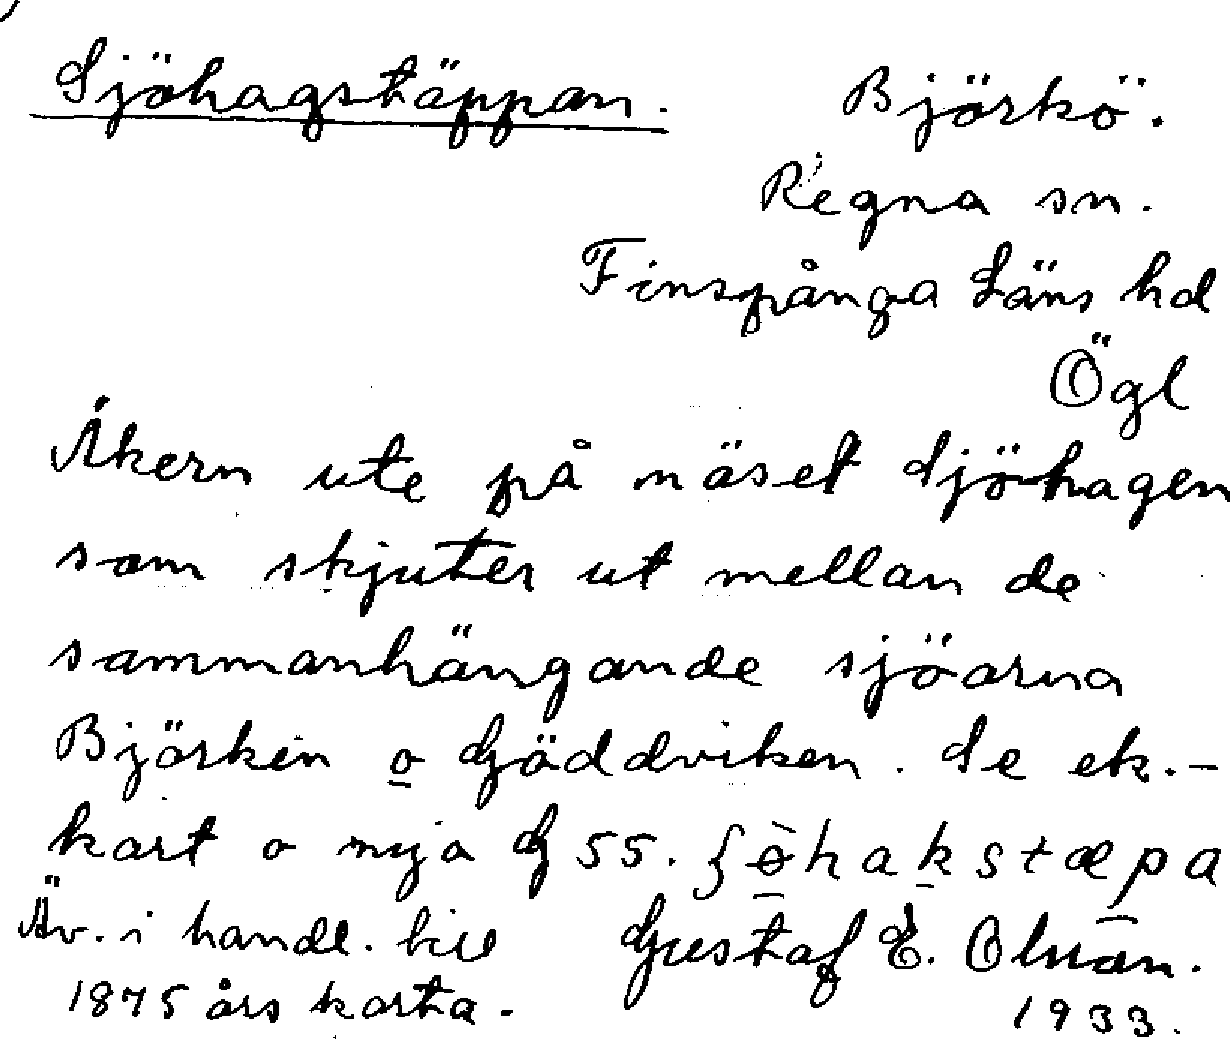 Sjöhagstäppan. Björkö.
Regna sn.
Finspånga Läns hd
Ögl
Åkern ute på näset Sjöhagen
som skjuter ut mellan de
sammanhängande sjöarna
Björken o Gäddviken. Se ek.-
kart o nya G 55. ʃòhakstæpa
Äv. i handl. till Gustaf E. Olsson.
1875 års karta. 1933.